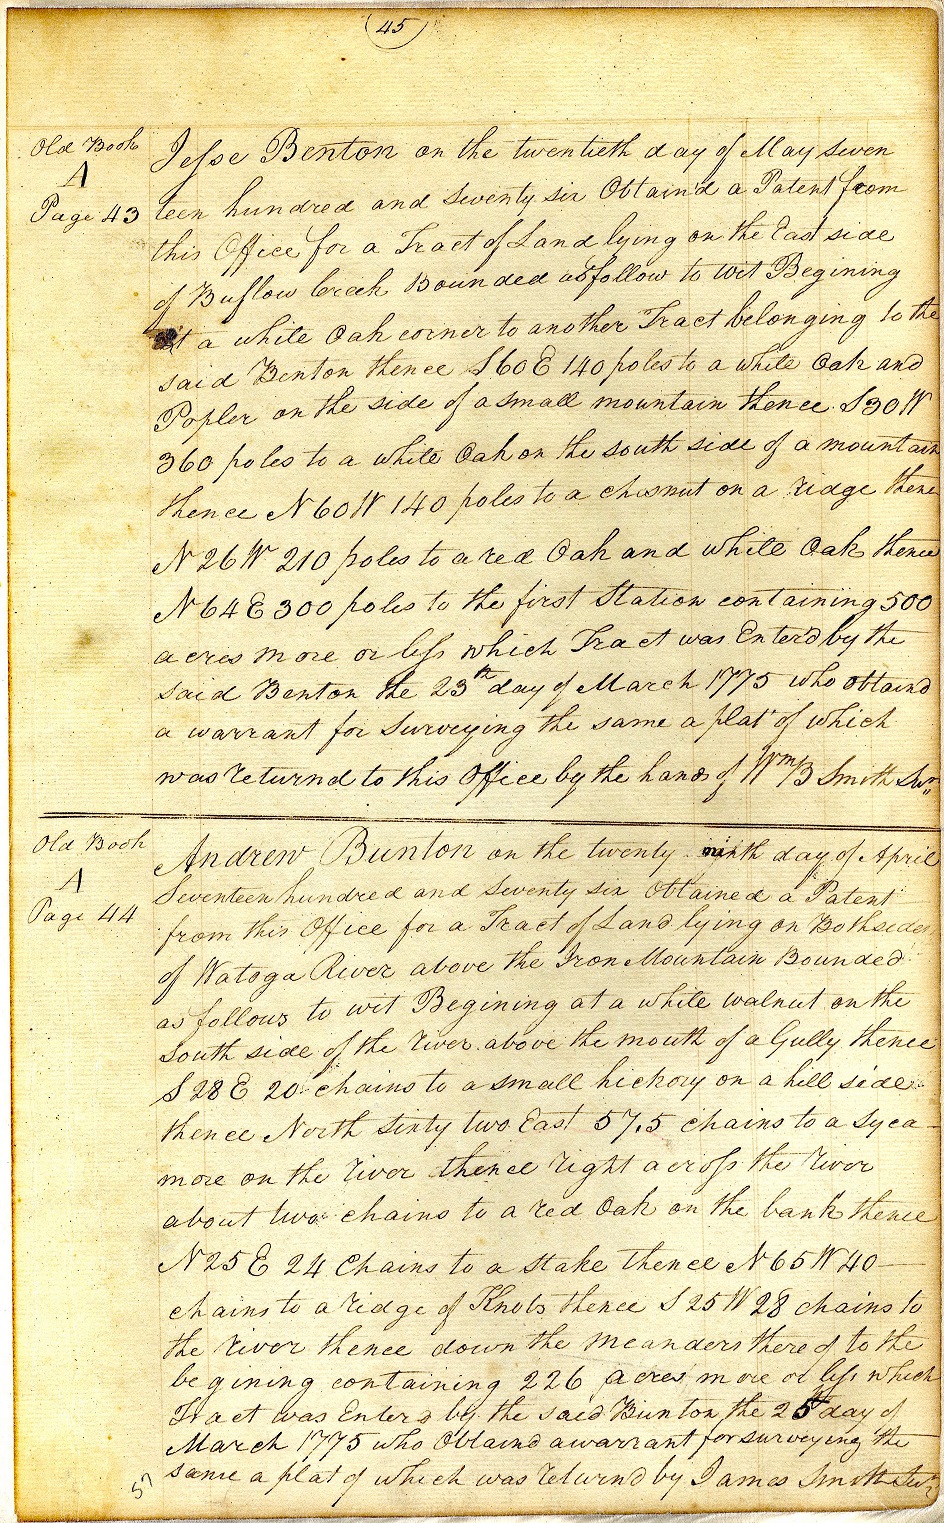 45
Old Book
A
Page 43
Jesse Benton on the twentieth day of May seven
teen hundred and seventy six Obtain'd a Patent from
this Office for a Tract of Land lying on the East side
of Buflow Creek Bounded as follow to wit Begining
at a white Oak corner to another Tract belonging to the
said Benton thence S60E 140 poles to a white Oak and
Popler on the side of a small mountain thence S30W
360 poles to a white Oak on the south side of a mountain
thence N60W 140 poles to a chesnut on a ridge thence
N26W 210 poles to a red Oak and white Oak thence
N64E 300 poles to the first Station containing 500
acres more or less which Tract was Enter'd by the
said Benton the 23th day of March 1775 who obtaind
a warrant for surveying the same a plat of which
was returnd to this Office by the hands of Wm B Smith Surr
Old Book
A
Page 44
Andrew Bunton on the twenty ninth day of April
Seventeen hundred and seventy six Obtained a Patent
from this Office for a Tract of Land lying on Both sides
of Watoga River above the Iron Mountain Bounded
as follows to wit Begining at a white walnut on the
South side of the river above the mouth of a Gully thence
S28E 20 chains to a small hickory on a hill side
thence North sixty two East 57.5 chains to a syca-
more on the river thence right across the river
about two chains to a red Oak on the bank thence
N25E 24 Chains to a stake thence N65W 40
chains to a ridge of Knobs thence S25W 28 chains to
the river thence down the meanders there of to the
begining containing 226 acres more or less which
Tract was Enterd by the said Bunton the 25th day of
March 1775 who Obtaind a warrant for surveying the
same a plat of which was returnd by James Smith Surr
57